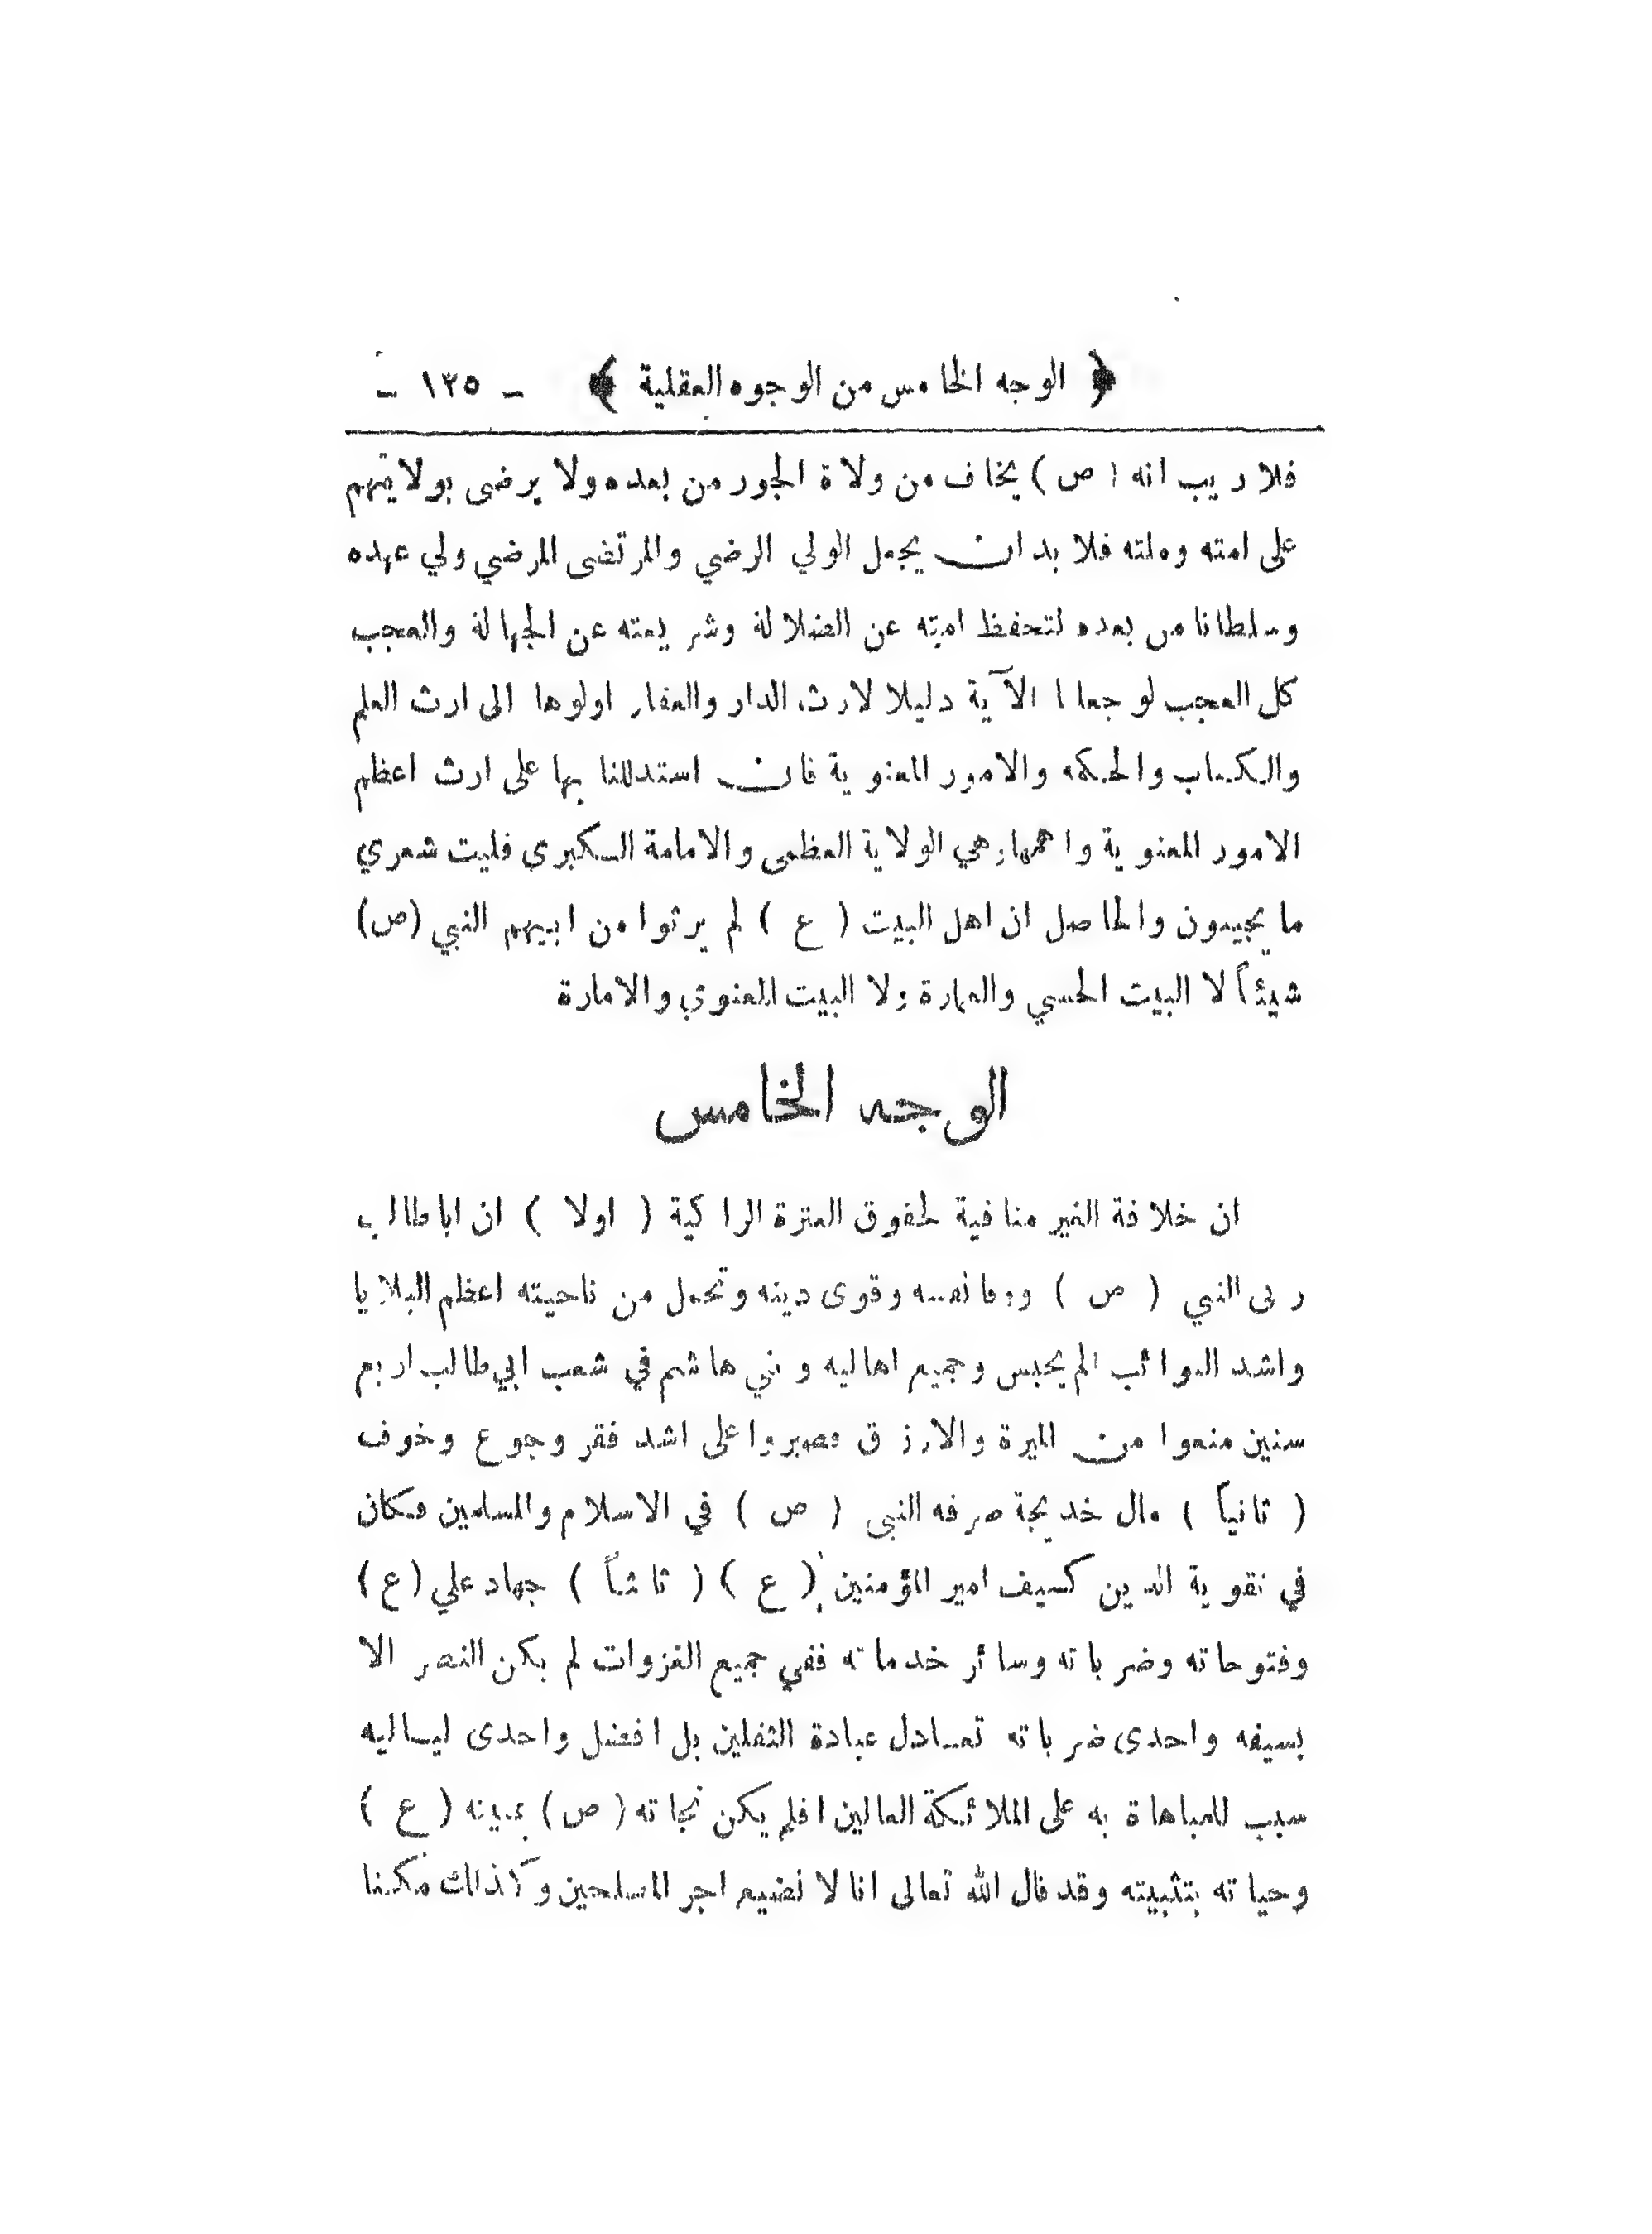 ﴿ الوجه الخامس من الوجوه العقلية ﴾ ـ ١٣٥ ـ
فلا ريب انه (ص) يخاف من ولاة الجور من بعده ولا يرضى بولايتهم
على امته وملته فلا بد ان يجعل الولي الرضي والمرتضى المرضي ولي عهده
وسلطانا من بعده لتحفظ امته عن الضلالة وشريعته عن الجهالة والعجب
كل العجب لو جعلنا الآية دليلا لارث الدار والعقار اولوها الى ارث العلم
والكتاب والحكمة والامور المعنوية فان استدللنا بها على ارث اعظم
الامور المعنوية واهمها وهي الولاية العظمى والامامة الكبرى فليت شعري
ما يجيبون والحاصل ان اهل البيت ( ع ) لم يرثوا من ابيهم النبي (ص)
شيئاً لا البيت الحسي والعمارة ولا البيت المعنوي والامارة
الوجه الخامس
ان خلافة الغير منافية لحقوق العترة الزاكية ( اولا ) ان اباطالب
ربى النبي ( ص ) ووقا نفسه وقوى دينه وتحمل من ناحيته اعظم البلايا
واشد النوائب الم يحبس وجميع اهاليه وبني هاشم في شعب ابي طالب اربع
سنين منعوا من الميرة والارزاق فصبروا على اشد فقر وجوع وخوف
( ثانياً ) مال خديجة صرفه النبي ( ص ) في الاسلام والمسلمين فكان
في تقوية الدين كسيف امير المؤمنين ( ع ) ( ثالثاً ) جهاد علي (ع)
وفتوحاته وضرباته وسائر خدماته ففي جميع الغزوات لم يكن النصر الا
بسيفه واحدى ضرباته تعادل عبادة الثقلين بل افضل واحدى لياليه
سبب للمباهاة به على الملائكة العالين افلم يكن نجاته (ص) بمبيته ( ع )
وحياته بتثبيته وقد قال الله تعالى انا لا نضيع اجر المصلحين وكذلك مكنا